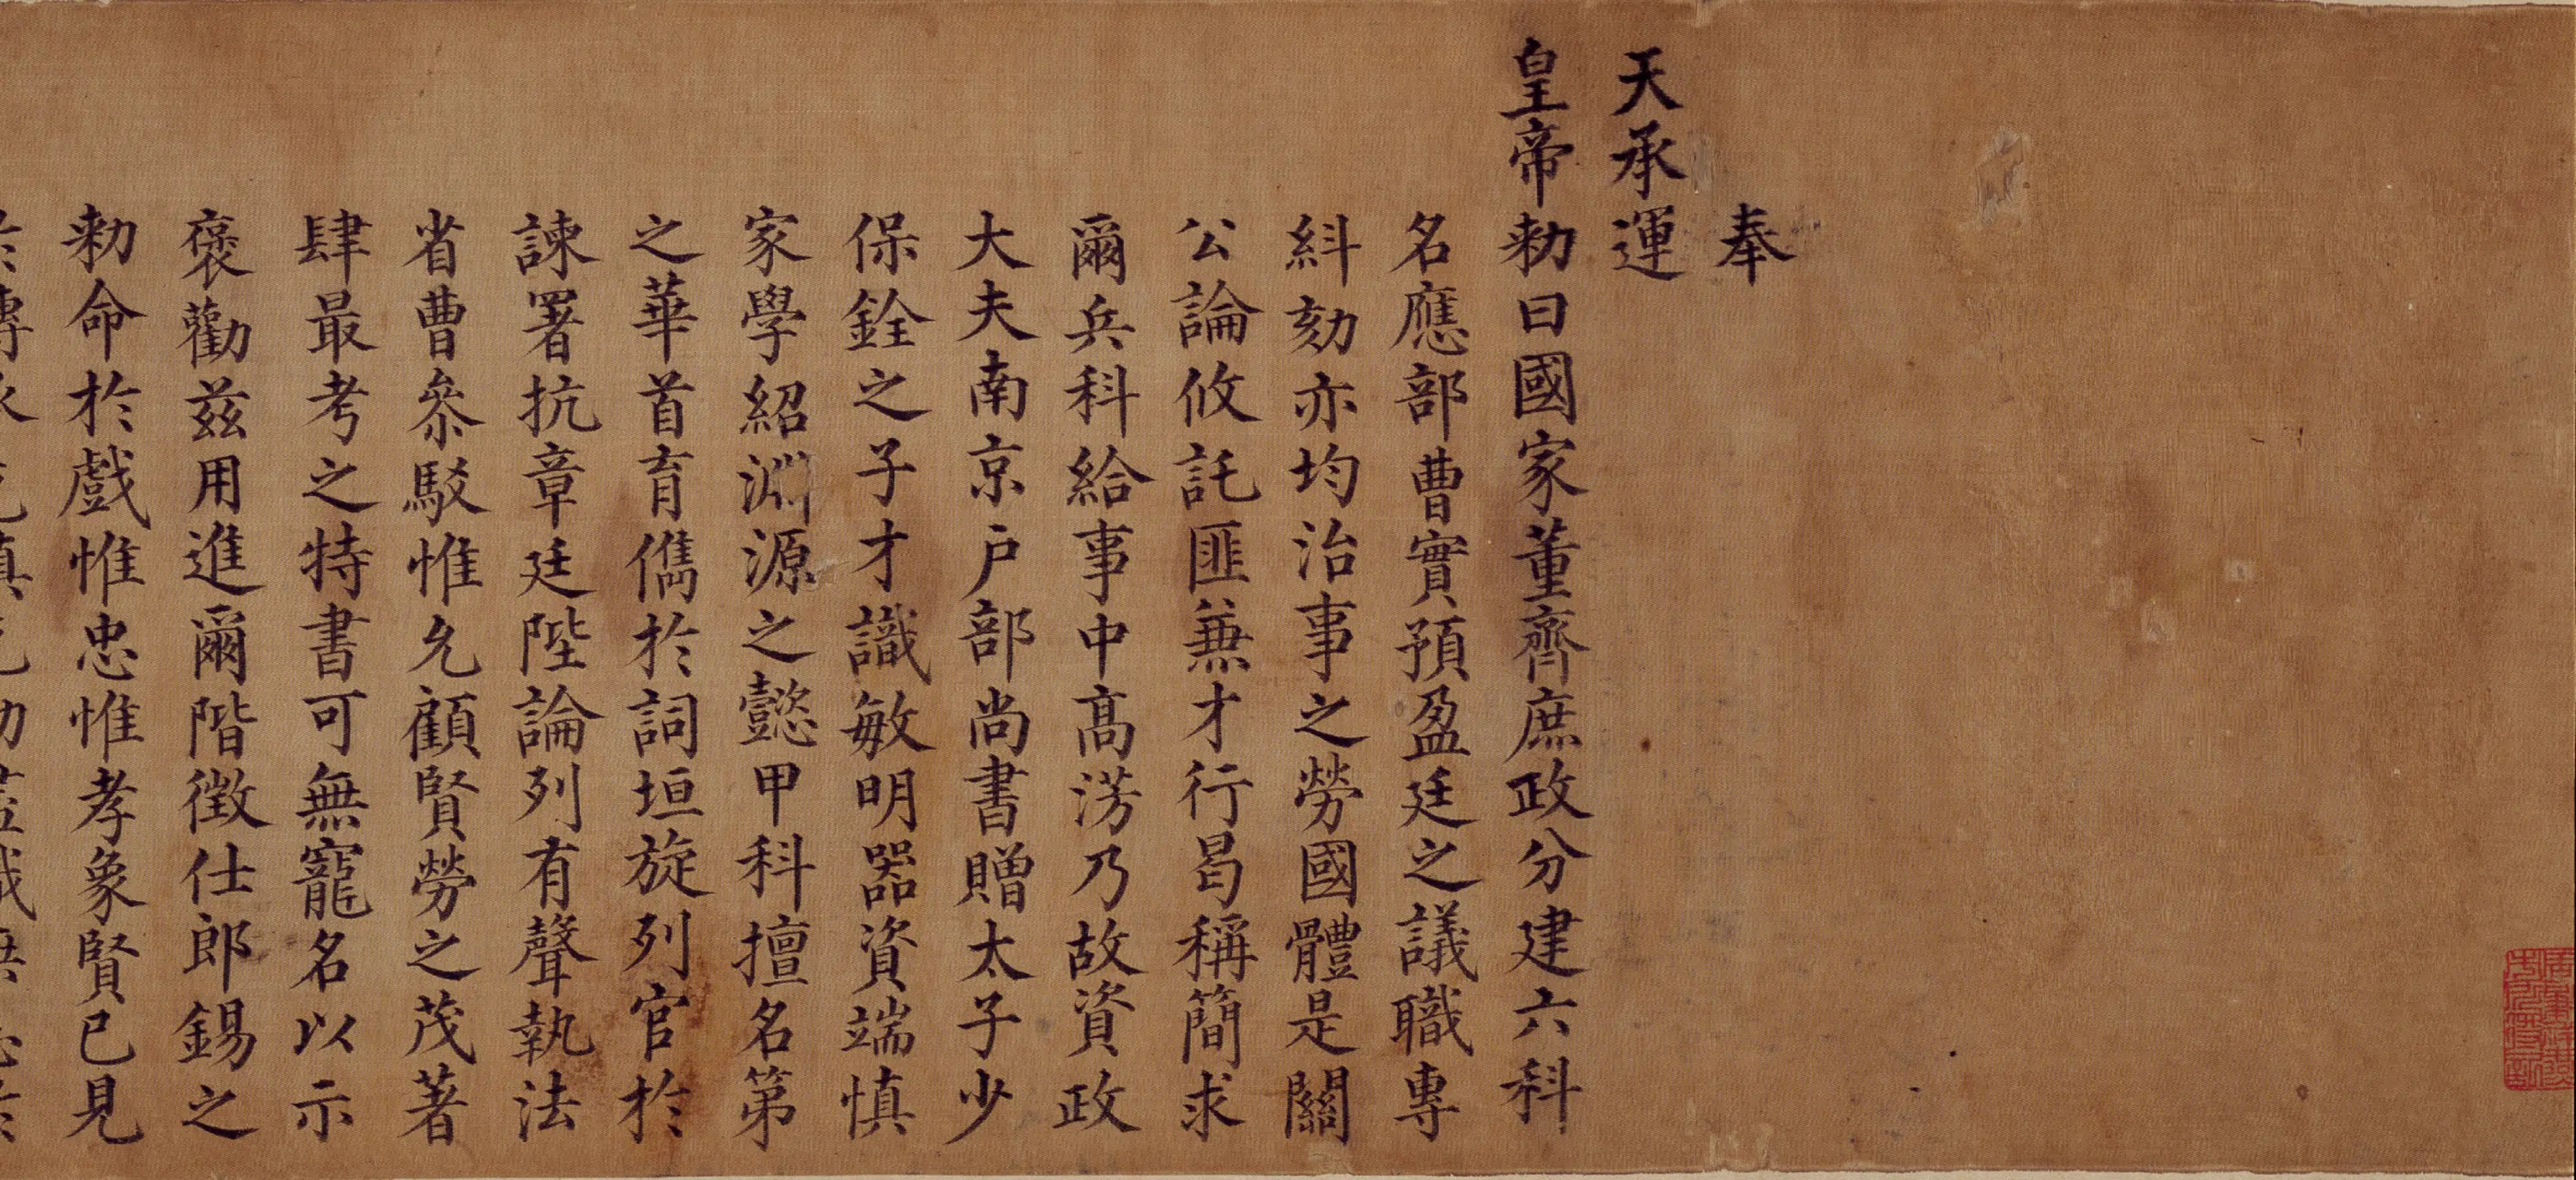 奉
天承運
皇帝勑曰國家董齊庶政分建六科
名應部曹實預盈廷之議職專
糾劾亦均治事之勞國體是關
公論攸託匪兼才行曷稱簡求
爾兵科給事中高淓乃故資政
大夫南京戶部尚書贈太子少
保銓之子才識敏明器資端慎
家學紹淵源之懿甲科擅名第
之華首育儁於詞垣旋列官於
諫署抗章廷陛論列有聲執法
省曹叅駁惟允顧賢勞之茂著
肆最考之特書可無寵名以示
褒勸茲用進爾階徵仕郎錫之
勑命於戲惟忠惟孝象賢已見